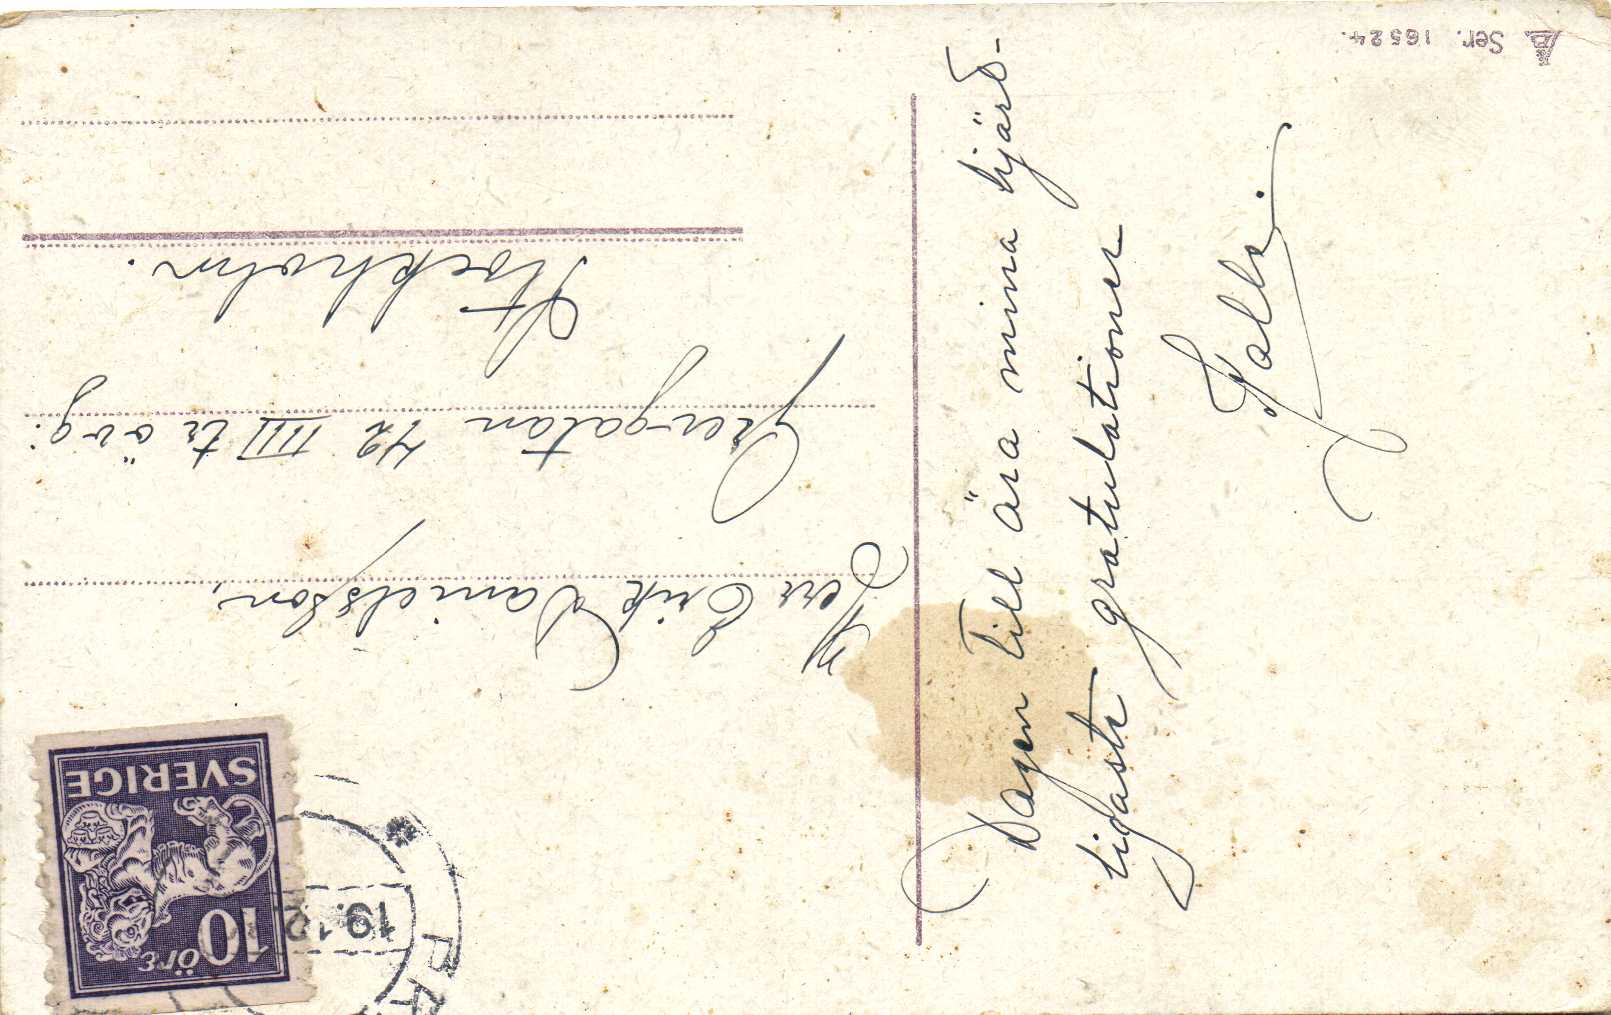 Ser. 16524.
Dagen till ära mina hjärt-
ligaste gratulationer
Kalle.
Herr Erik Danielsson,
Grevgatan 42 IIII tr ö v g.
Stockholm.
SVERIGE
10 öre
19.12